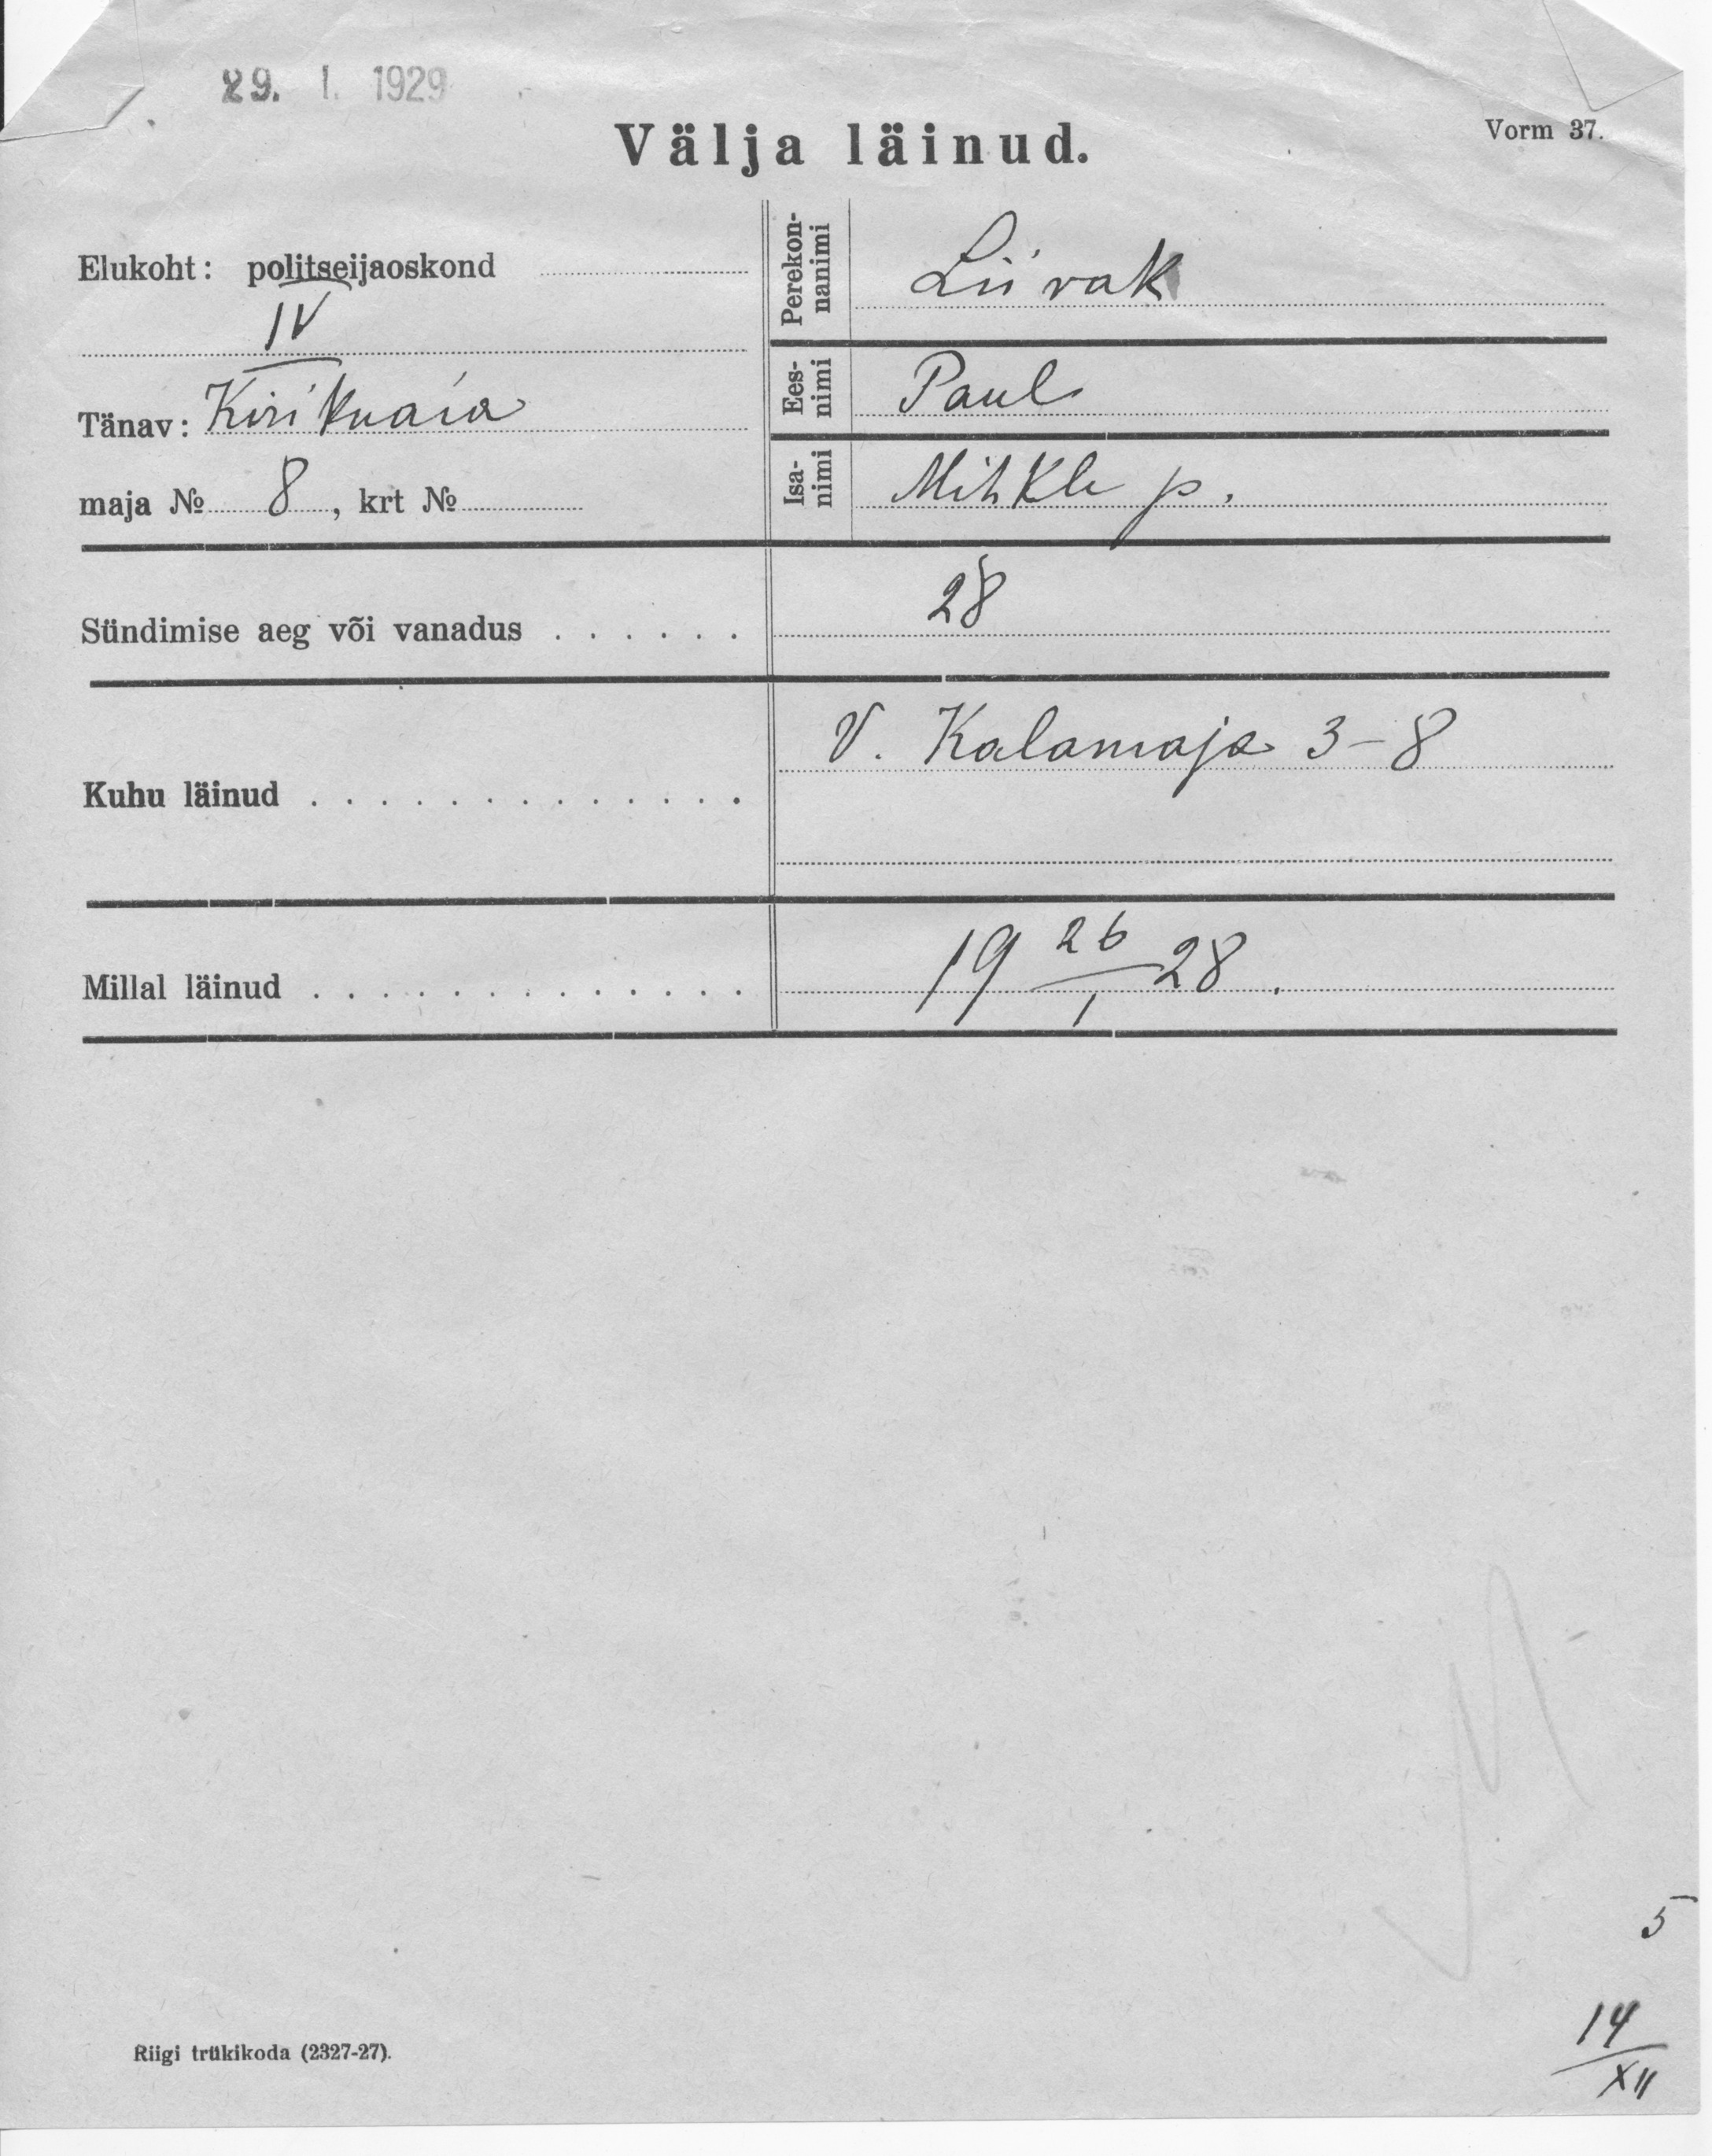 29. I. 1929
Välja läinud.
Vorm 37.
Elukoht: politseijaoskond
IV
Tänav: Kirikuaia
maja № 8, krt №
Perekon-
nanimi
Liivak
Ees-
nimi
Paul
Isa-
nimi
Mihkli p.
Sündimise aeg või vanadus . . . . . .
28
Kuhu läinud . . . . . . . . . . . . .
V. Kalamaja 3-8
Millal läinud . . . . . . . . . . . . .
19 26/1 28.
5
14/XII
Riigi trükikoda (2327-27).